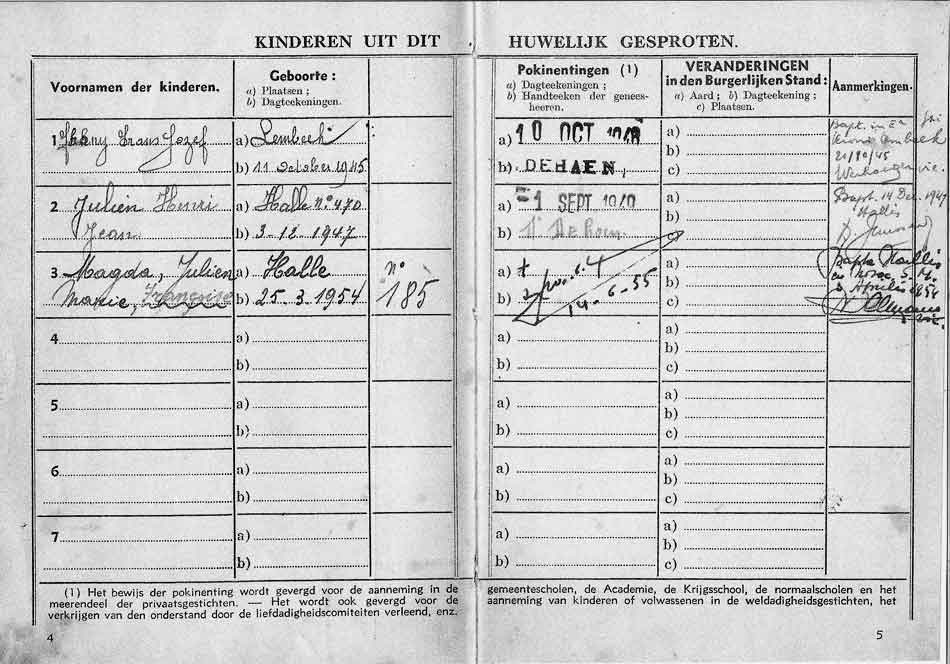 KINDEREN UIT DIT HUWELIJK GESPROTEN.
Voornamen der kinderen.
Geboorte :
a) Plaatsen ;
b) Dagteekeningen.
Pokinentingen (1)
a) Dagteekeningen ;
b) Handteeken der genees-
heeren.
VERANDERINGEN
in den Burgerlijken Stand :
a) Aard ; b) Dagteekening ;
c) Plaatsen.
Aanmerkingen.
1 Frans Jozef
a) Lembeek
b) 11 October 1945
a) 10 OCT
b) DEHAEN,
a)
b)
c)
Bapt. in
21/10/45
2 Julien Henri
Jean
a) Halle n° 470
b) 3-12-1947
a) 1 SEPT
b)
a)
b)
c)
Bapt. 14 Dec. 1947
Hallis
3 Magda, Julien
Maria,
a) Halle
b) 25-3-1954
n°
185
a)
b)
14-6-55
a)
b)
c)
Bapta Hallis
Aprilis
4
a)
b)
a)
b)
a)
b)
c)
5
a)
b)
a)
b)
a)
b)
c)
6
a)
b)
a)
b)
a)
b)
c)
7
a)
b)
a)
b)
a)
b)
c)
(1) Het bewijs der pokinenting wordt gevergd voor de aanneming in de
meerendeel der privaatsgestichten. — Het wordt ook gevergd voor de
verkrijgen van den onderstand door de liefdadigheidscomiteiten verleend, enz.
gemeentescholen, de Academie, de Krijgsschool, de normaalscholen en het
aanneming van kinderen of volwassenen in de weldadigheidsgestichten, het
4
5